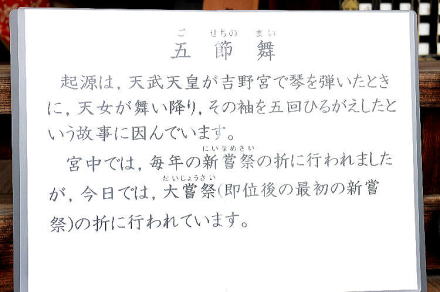 ご せちの まい
五節舞
起源は，天武天皇が吉野宮で琴を弾いたとき
に，天女が舞い降り，その袖を五回ひるがえしたと
いう故事に因んでいます。
にいなめさい
宮中では，毎年の新嘗祭の折に行われました
だいじょうさい
が，今日では，大嘗祭(即位後の最初の新嘗
祭)の折に行われています。